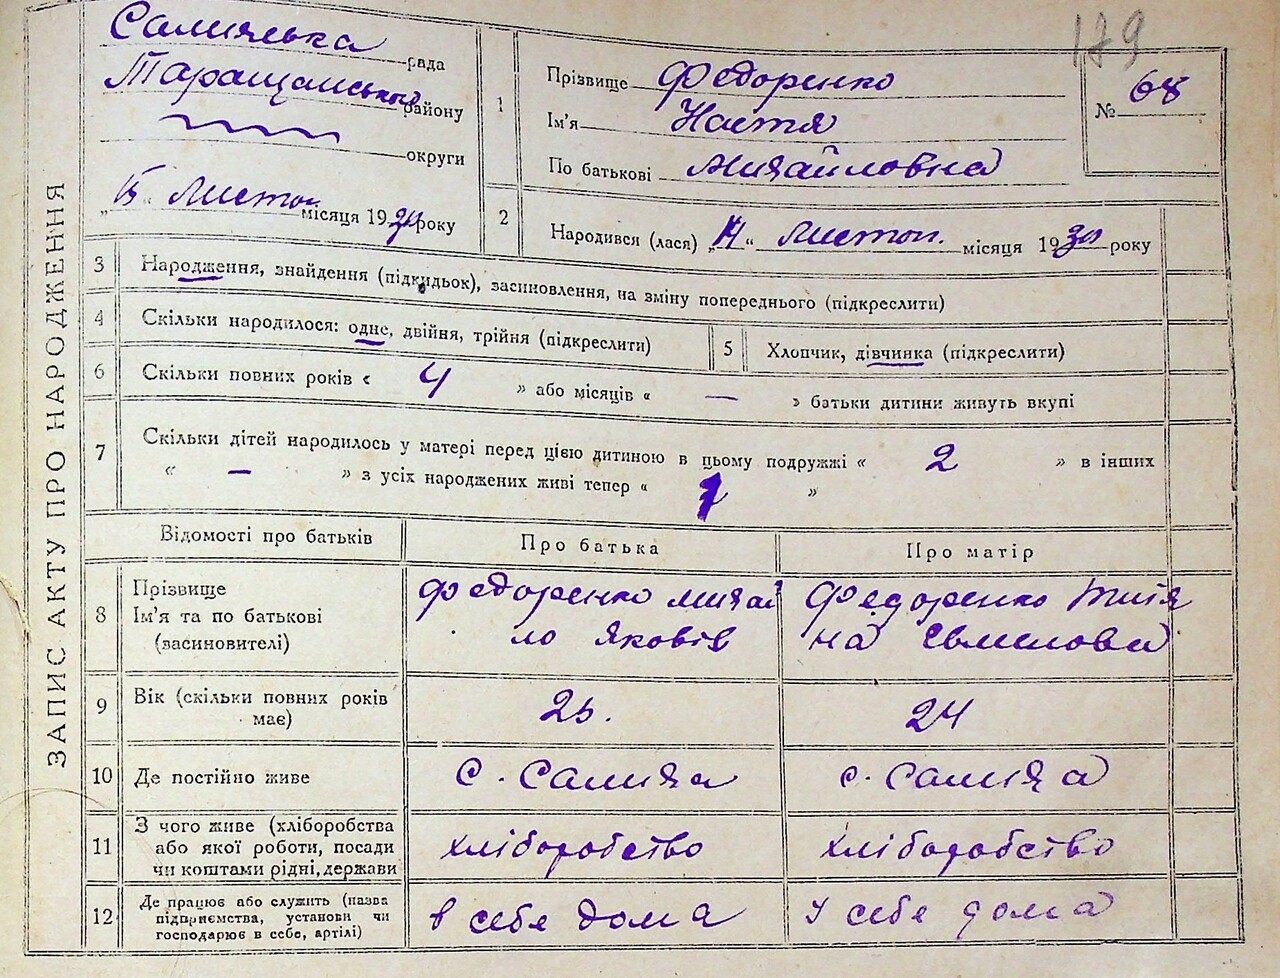 179
ЗАПИС АКТУ ПРО НАРОДЖЕННЯ
рада
Таращанського району
округи
„15“ Листоп. місяця 19 року
1 Прізвище Федоренко
Ім'я Настя
По батькові Михайловна
№ 68
2 Народився (лася) „14“ листоп. місяця 1930 року
3 Народження, знайдення (підкидьок), засиновлення, на зміну попереднього (підкреслити)
4 Скільки народилося: одне, двійня, трійня (підкреслити) 5 Хлопчик, дівчинка (підкреслити)
6 Скільки повних років « 4 » або місяців « — » батьки дитини живуть вкупі
7 Скільки дітей народилось у матері перед цією дитиною в цьому подружжі « 2 » в інших
« — » з усіх народжених живі тепер « 1 »
Відомості про батьків Про батька Про матір
8 Прізвище Федоренко Михай Федоренко Титя
Ім'я та по батькові ло Яковів на
(засиновителі)
9 Вік (скільки повних років 25. 24
має)
10 Де постійно живе с. Салиха с. Салиха
11 З чого живе (хліборобства
або якої роботи, посади хліборобство хліборобство
чи коштами рідні, держави
12 Де працює або служить (назва
підприємства, установи чи в себе дома у себе дома
господарює в себе, артілі)